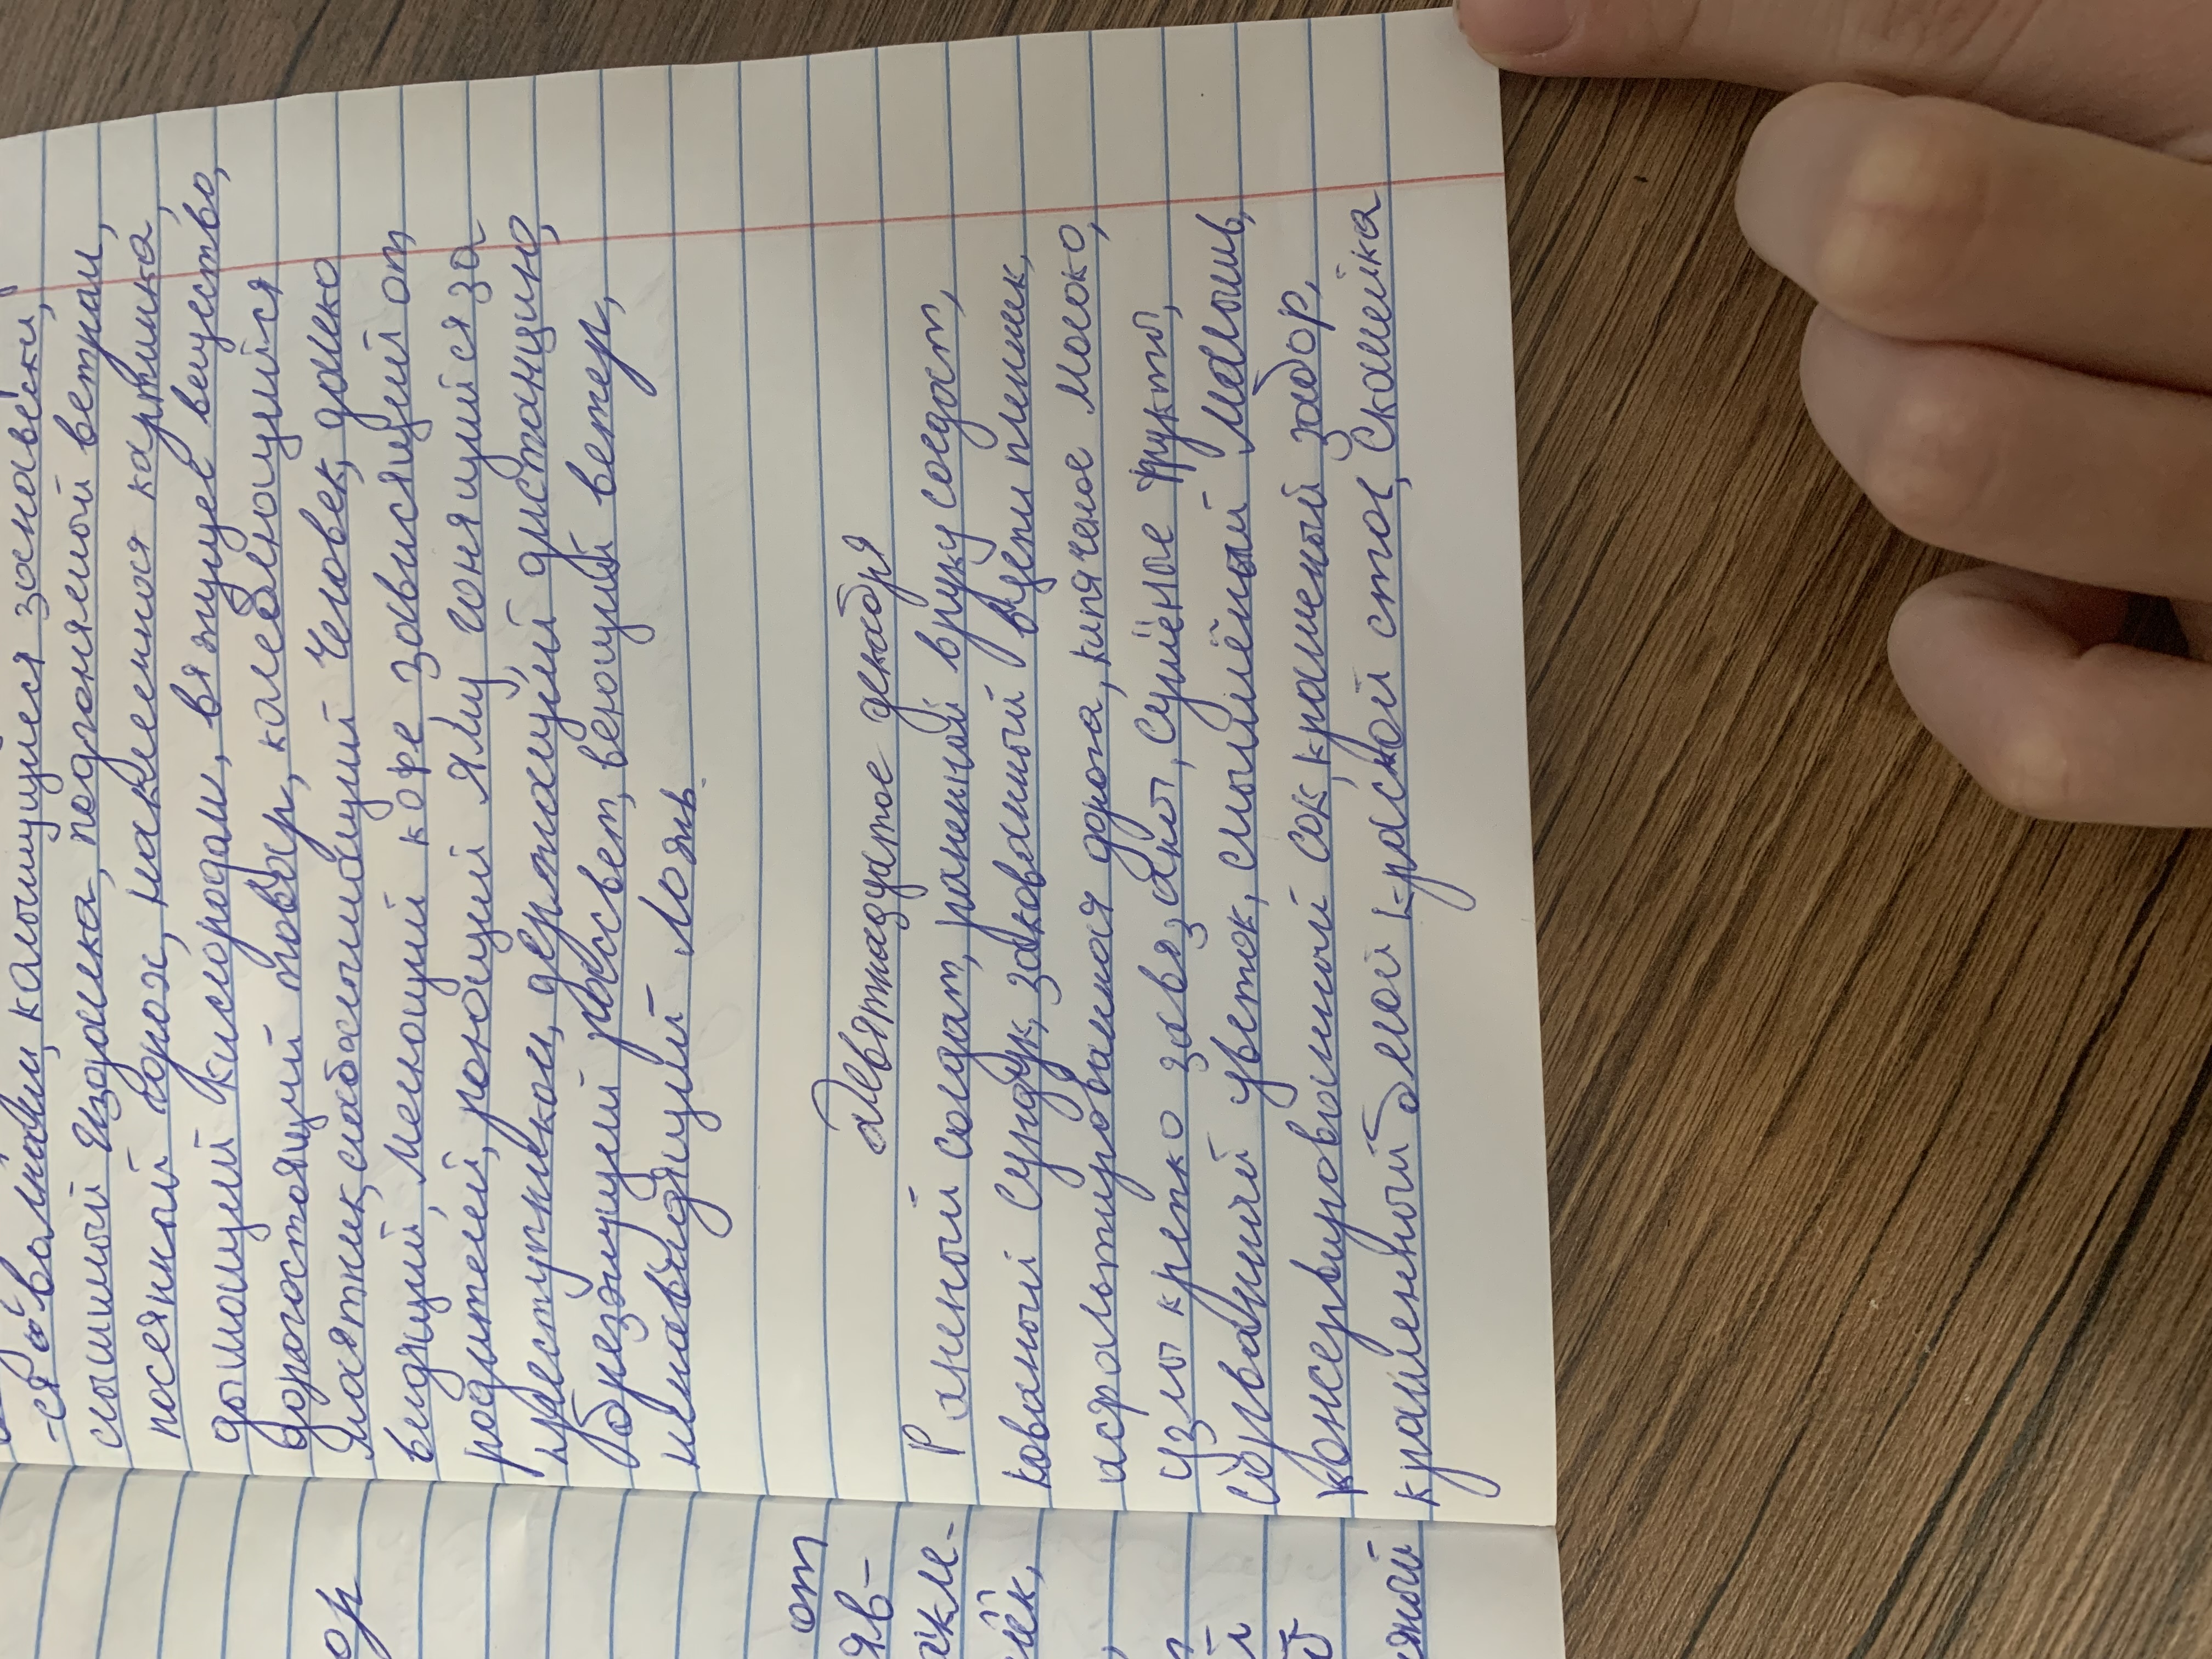 -ся волнами, калышущиеся занавески,
слышимый издалека, подгоняемой ветрам,
посеянный горох, наклеенная картинка,
дышащий кислородом, вяжущее вещество,
дорогостоящий товар, колеблющийся
маятник, слабослышащий человек, далеко
видящий, мелющий кофе зависящий от
родителей, роющий яму, гонящийся за
преступником, держащий дистанцию,
брезжущей рассвет, веющий ветер,
ненавидящий ложь.
Девятнадцатое декабря
Раненый солдат, раненный в руку солдат,
кованый сундук, закованный в цепи пленник,
асфальтированная дорога, кипяченое молоко,
узлы крепко завязаны, сушёное фрукты,
сорванный цветок, смышлёный малышь,
консервированный сок, крашеный забор,
крашенный белой краской стол, скамейка
ор
от
яв-
акле-